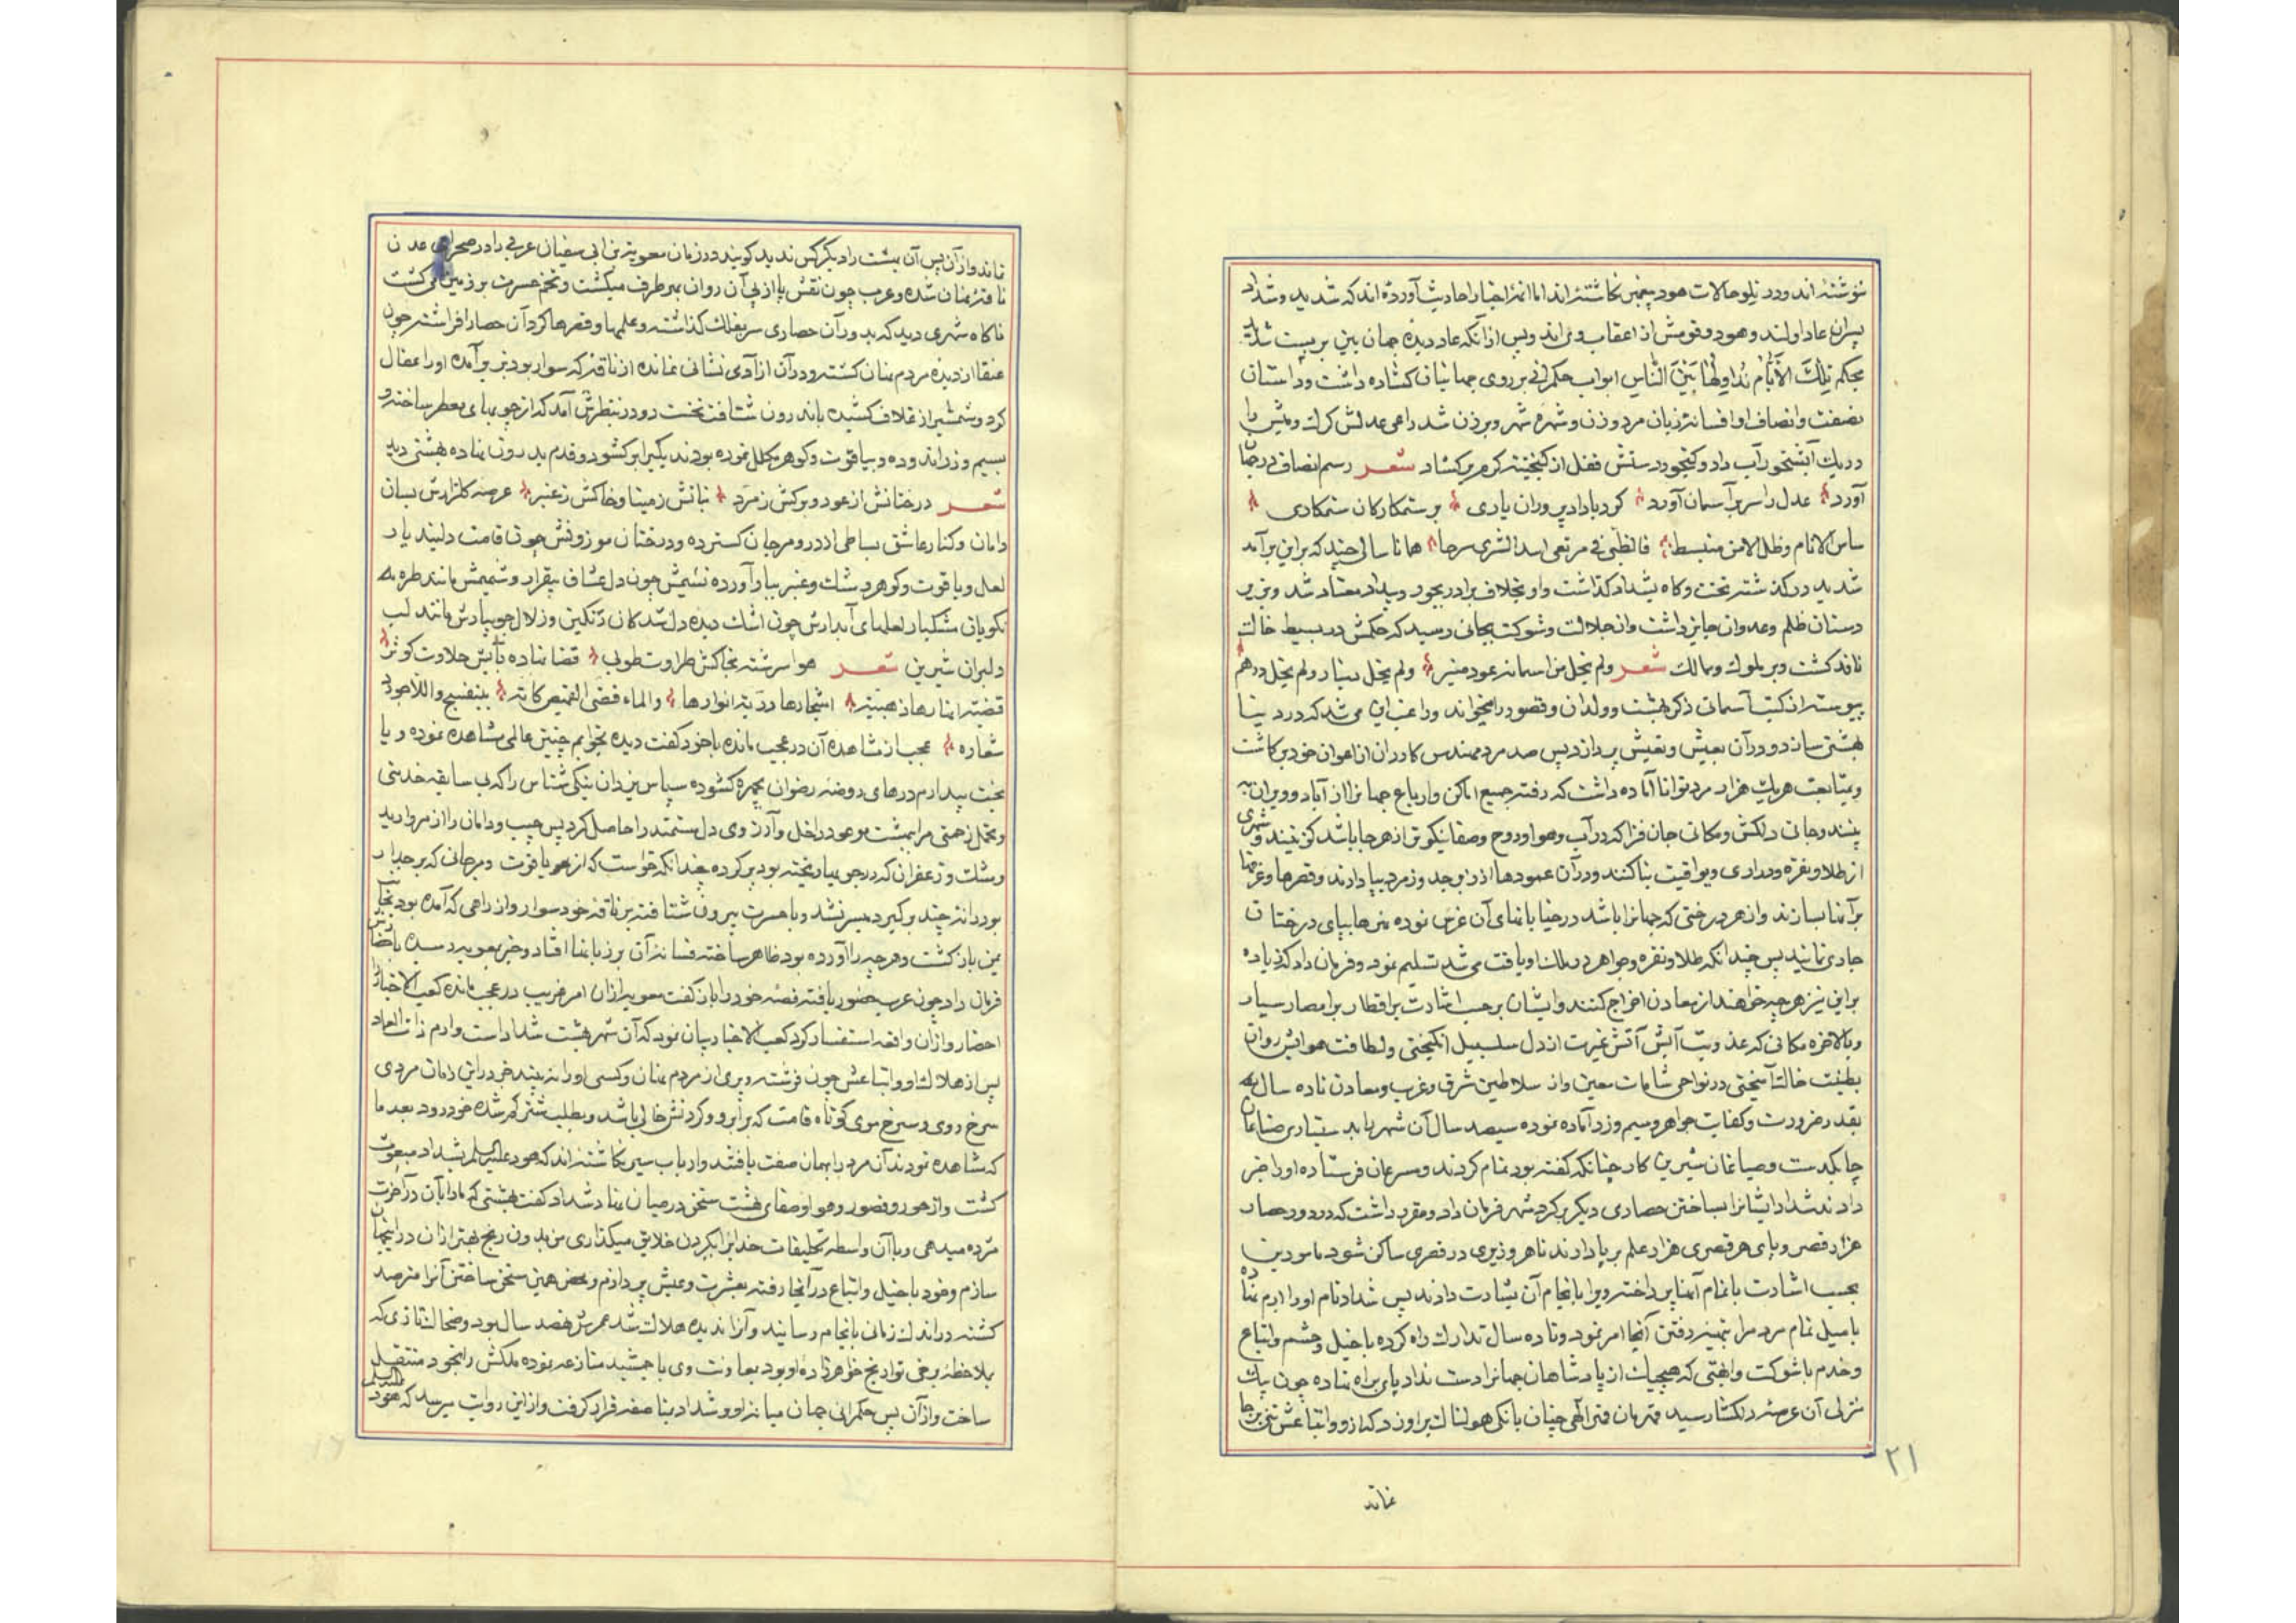 نوشته‌اند و در تلو حالات هود پیغمبر نگاشته‌اند اما ائمه اخبار احادیث آورده‌اند که شدید و شداد
پسران عاد اولند و هود و قومش از اعقاب وی‌اند و پس از آنکه عاد دیده جهان بین بر بست شدید
بحکم تِلْكَ الاَیّٰام نُداوِلُهٰا بَیْنَ النّٰاس ابواب حکمرانی بر روی جهانیان کشاده داشت و داستان
نصفت و انصاف او افسانه زبان مرد و زن و شهره شهر و برزن شد راعی عدلش کرک و میش را
در یک آبشخور آب داد و کنجور دستش قفل از کنجینه کرم بر کشاد شعر رسم انصاف در جهان
آورد عدل را سر بر آسمان آورد کرد با داد پروران یاری بر ستمکارکان ستمکاری
ساس الانام و ظل الامن منبسط فالظبی فی مرتعی اسد الشری سرحا همانا سالی چند که بر این بر آمد
شدید در کذشته تخت و کاه بشداد کذاشت و او بخلاف برادر بجور و بیداد معتاد شد و زیر
دستان ظلم و عدوان جایز داشت و از جلالت و شوکت بجائی رسید که حکمش در بسیط خاک
نافذ کشت و بر ملوک و ممالک شعر ولم یخل من اسمائه عود منبر ولم یخل دینار ولم یخل درهم
پیوسته از کتب آسمانی ذکر بهشت و ولدان و قصور را میخواند و راغب آن می‌شد که در دنیا
بهشتی سازد و در آن بعیش و تعیش پردازد پس صد مرد مهندس کاردان از اعوان خود بر کاشت
و بمتابعت هر یک هزار مرد توانا آماده داشت که رفته جمیع اماکن و ارباع جهانرا از آباد و ویران به
بینند و جائی دلکش و مکانی جان فزا که در آب و هوا و روح و صفا نیکوتر از هر جا باشد کزینند و شهری
از طلا و نقره و دراری و یواقیت بنا کنند و در آن عمودها از زبرجد و زمرد بپا دارند و قصرها و غرفها
بر آنها بسازند و از هر درختی که جهانرا باشد در خیابانهای آن غرس نموده نهرها بپای درختان
جاری نمایند پس چندانکه طلا و نقره و جواهر در ملک او یافت می‌شد تسلیم نمود و فرمان داد که زیاده
بر این نیز هر چه خواهند از معادن اخراج کنند و ایشان بر حسب اشارت بر اقطار بر امصار سیار
و بالاخره مکانی که عذوبت آبش آتش غیرت از دل سلسبیل انکیختی و لطافت هوایش روان
بطینت خاک آمیختی در نواحی شامات معین و از سلاطین شرق و غرب و معادن تا ده سال
بقدر ضرورت و کفایت جواهر و سیم و زر آماده نموده سیصد سال آن شهر بدستیاری صناعان
چابکدست و صیاغان شیرین کار چنانکه کفته بود تمام کردند و مسرعان فرستاده او را خبر
دادند شداد ایشانرا بساختن حصاری دیکر بر کرد شهر فرمان داد و مقرر داشت که در دور حصار
هزار قصر و بپای هر قصری هزار علم بر پا دارند تا هر وزیری در قصری ساکن شود مامورین
بحسب اشارت باتمام آنها پرداخته ویرا بانجام آن بشارت دادند پس شداد نام او را ارم نهاده
با میل تمام مردم را بتهیه رفتن آنجا امر نمود و تا ده سال تدارک راه کرده با خیل و حشم و اتباع
و خدم با شوکت و ابهتی که هیچیک از پادشاهان جهانرا دست نداد پای براه نهاده چون بیک
منزلی آن عرصه دلکشا رسید قهرمان قهر الهی چنان بانکی هولناک بر او زد که از او و اتباعش تنی برجا
۲۱
نماند
نماند و از آن پس آن بهشت را دیکر کس ندید کویند در زمان معویة بن ابی سفیان عربی را در صحرای عدن
ناقه نهان شده و عرب چون نقش پا از پی آن روان بهر طرف میکشت و تخم حسرت بر زمین می کشت
ناکاه شهری دید که بدور آن حصاری سر بفلک کذاشته و علمها و قصرها کرد آن حصار افراشته چون
عنقا از دیده مردم نهان کشته و در آن از آدمی نشانی نمانده از ناقه که سوار بود بزیر آمده او را عقال
کرد و شمشیر از غلاف کشیده باندرون شتافت نخست دو در بنظرش آمد که از چوبهای معطر ساخته و
بسیم و زر اندوده و بیاقوت و کوهر مکلل نموده بودند یکیرا بر کشود و قدم بدرون نهاده بهشتی دید
شعر درختانش از عود و برکش زمرد نباتش ز مینا و خاکش ز عنبر عرصه کلزارش بسان
دامان و کنار عاشق بساطی از در و مرجان کسترده و درختان موزونش چون قامت دلبند یار
لعل و یاقوت و کوهر و مشک و عنبر ببار آورده نسیمش چون دل عشاق بیقرار و شمیمش مانند طره
نکویان مشکبار لعلهای آبدارش چون اشک دیده دل شدکان رنکین و زلال جویبارش مانند لب
دلبران شیرین شعر هوا سرشته بخاکش طراوت طوبی قضا نهاده بآبش حلاوت کوثر
فضته انهارها ذهبیة اشجارها دریة انوارها والماء فضی القمیص کانه ببنفسج واللاجورد
شعاره عجب از مشاهده آن در عجب مانده با خود کفت دیده بخوابم چنین عالمی مشاهده نموده و یا
بخت بیدارم درهای روضه رضوان بچهره کشوده سپاس یزدان نیکی شناس را که بی سابقه خدمتی
و تحمل زحمتی مرا ببهشت موعود داخل و آرزوی دل مستمند را حاصل کرد پس جیب و دامان را از مروارید
و مشک و زعفران که در جویها ریخته بود پر کرده چندانکه خواست که از هر یاقوت و مرجانی که بر جدار
بود دانه چند بر کیرد میسر نشد و با حسرت بیرون شتافته بر ناقه خود سوار و از راهی که آمده بود بجانب
یمن باز کشت و هر چه را آورده بود ظاهر ساخته فسانه آن بر زبانها افتاد و خبر بمعویه رسیده باحضارش
فرمان داد چون عرب حضور یافته قصه خود را باز کفت معویه از آن امر غریب در عجب مانده کعب الاخبار را
احضار و از آن واقعه استفسار کرد کعب الاخبار بیان نمود که آن شهر بهشت شداد است و ارم ذات العماد
پس از هلاک او و اتباعش چون فرشته و پری از مردم نهان و کسی او را نه بیند جز در این زمان مردی
سرخ روی و سرخ موی کوتاه قامت که بر ابرو و کردنش خالی باشد و بطلب شتر کم شده خود رود بعد ما
که مشاهده نمودند آن مرد را بهمان صفت یافتند و ارباب سیر نکاشته‌اند که هود علیه السلم بشداد مبعوث
کشت و از حور و قصور و هوا و صفای بهشت سخن در میان نهاد شداد کفت بهشتی که ما را بآن در آخرت
مژده میدهی و با آن واسطه تکلیفات خدایرا بکردن خلایق میکذاری من بدون رنج بهتر از آن در اینجهان
سازم و خود با خیل و اتباع در آنجا رفته بعشرت و عیش پردازم و بمحض همین سخن ساختن آنرا مترصد
کشته در اندک زمانی بانجام رسانید و آنرا ندیده هلاک شد عمرش هفتصد سال بود و ضحاک تازی که
بملاحظه برخی تواریخ خواهرزاده او بود بمعاونت وی با جمشید منازعه نموده ملکش را بخود منتقل
ساخت و از آن پس حکمرانی جهان میانه او و شداد بمناصفه قرار کرفت و از این روایت میرسد که هود علیه السلم